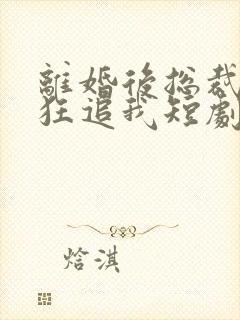 離婚後總裁
狂追我短劇
焓淇